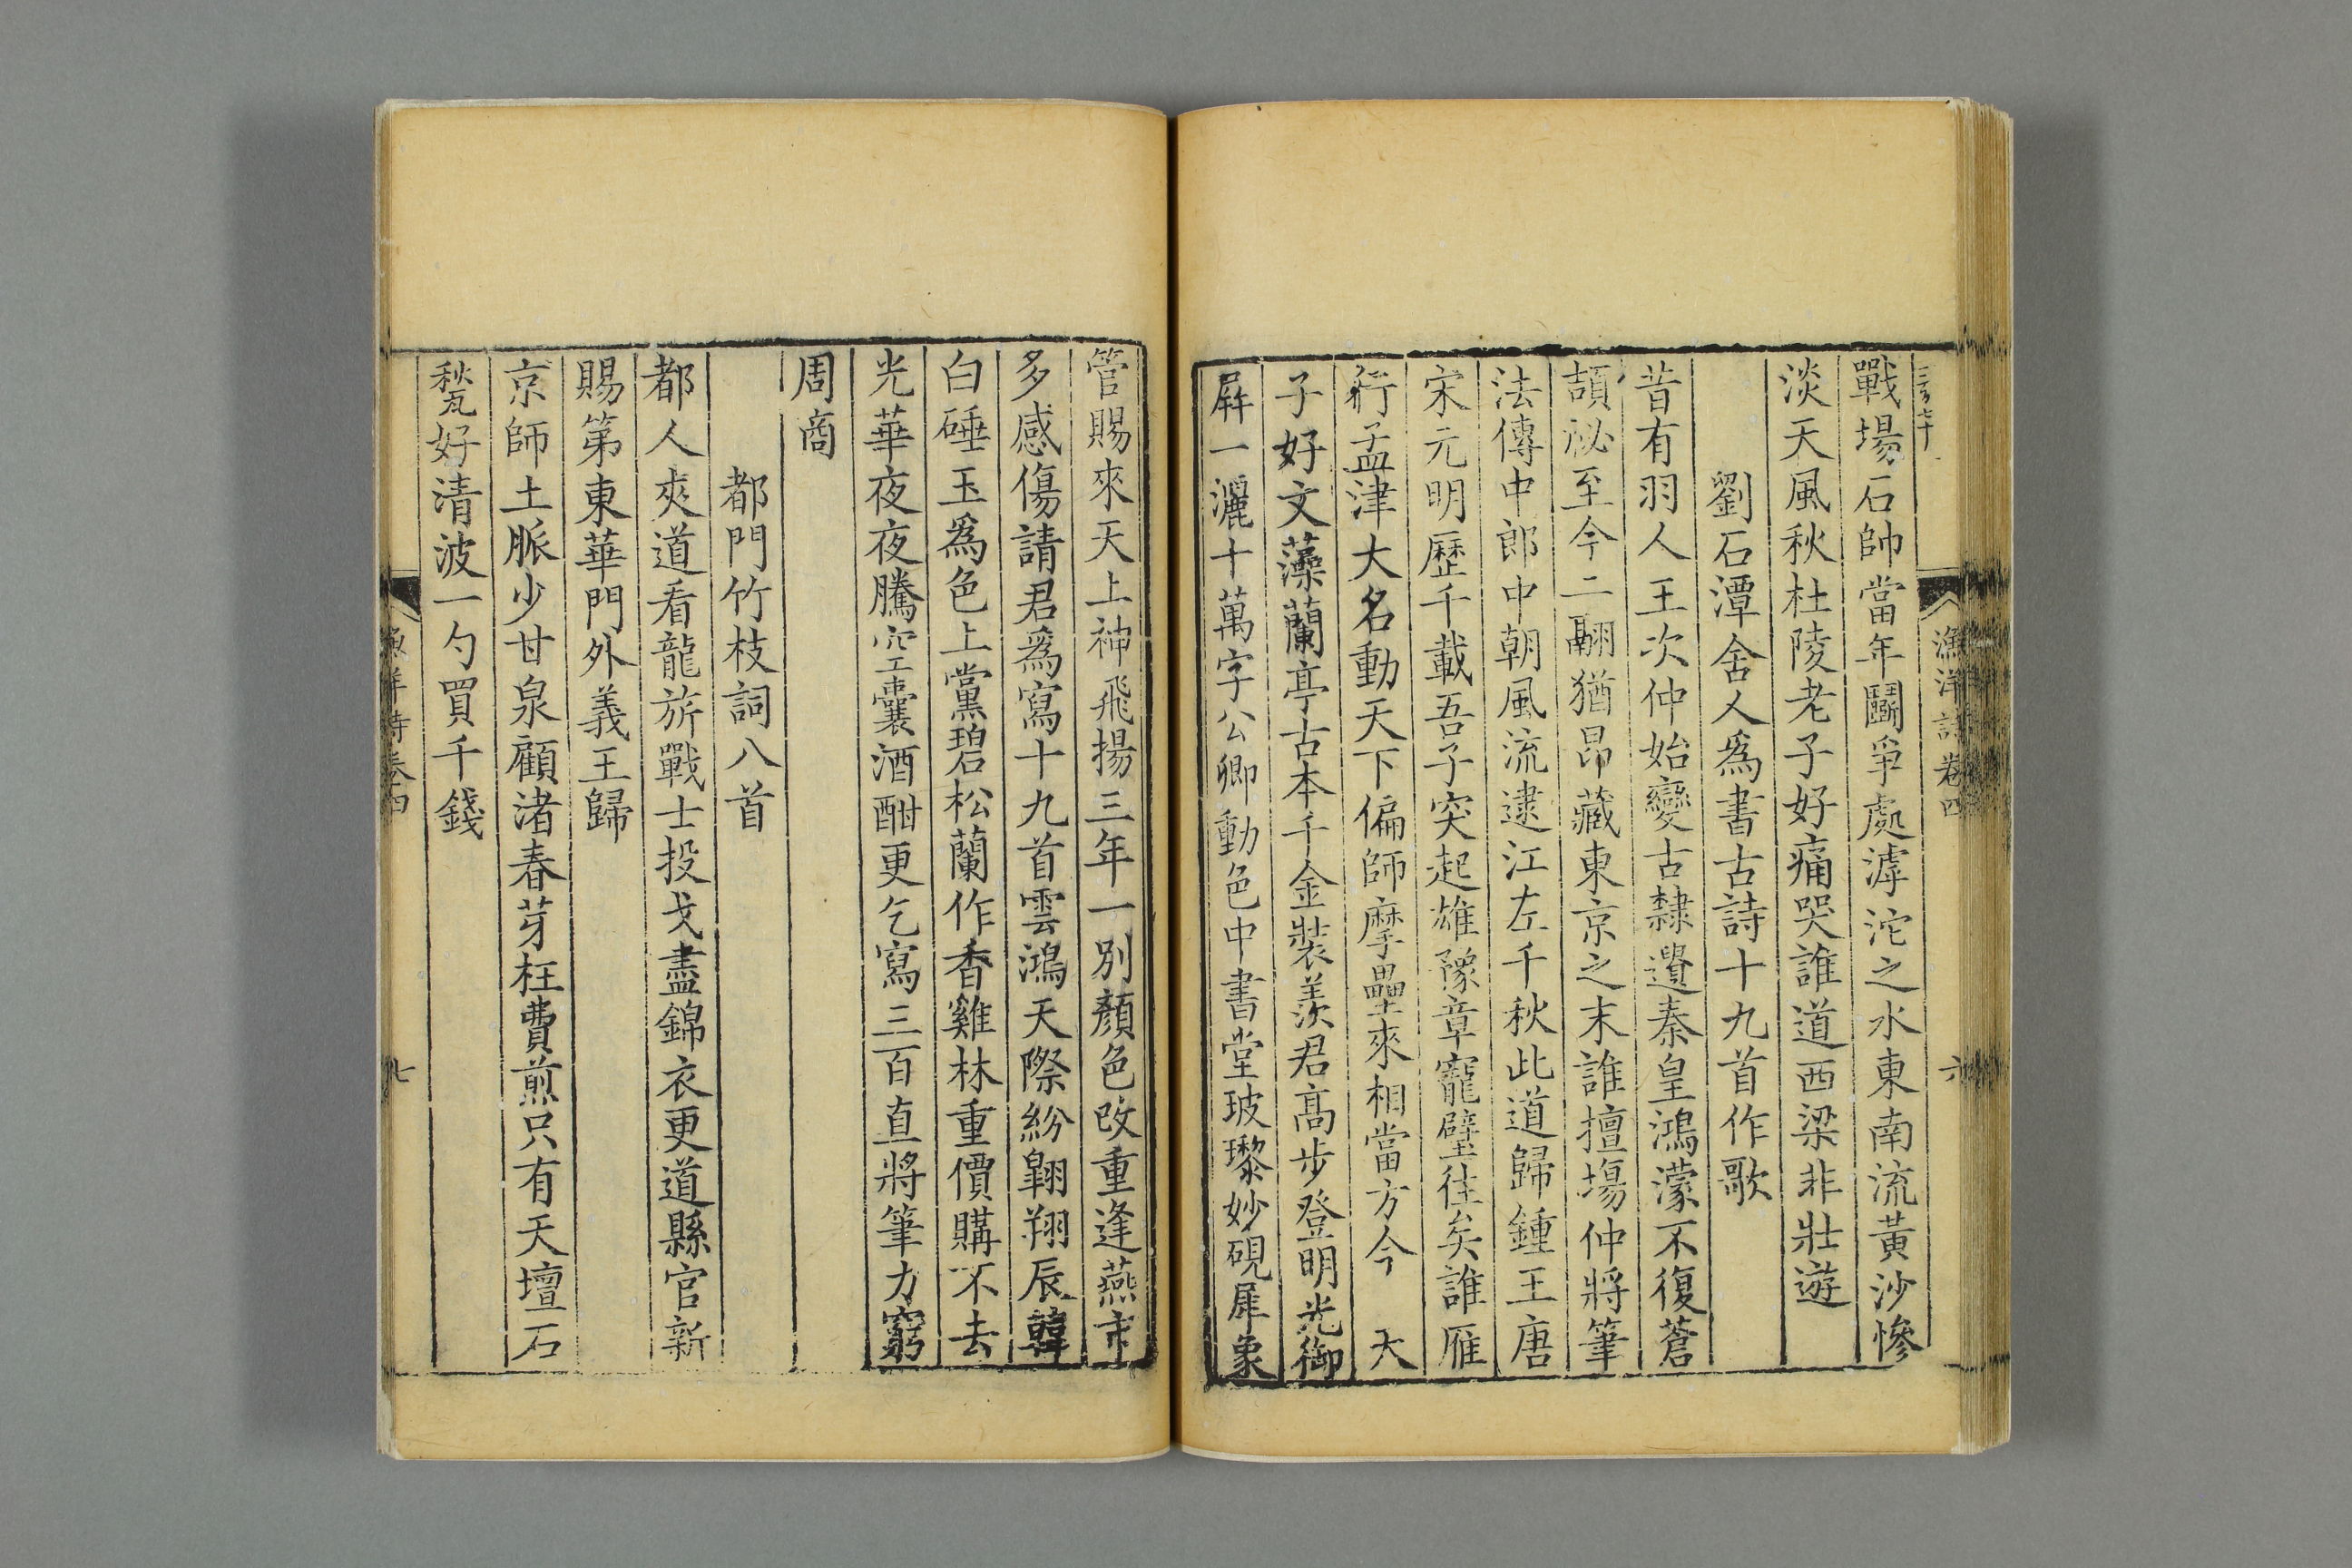 三百七十
漁洋詩卷四
六
戰場石帥當年鬭爭處滹沱之水東南流黃沙慘
淡天風秋杜陵老子好痛哭誰道西梁非壯遊
劉石潭舍人爲書古詩十九首作歌
昔有羽人王次仲始變古隸遺秦皇鴻濛不復蒼
頡祕至今二翮猶昂藏東京之末誰擅塲仲將筆
法傳中郎中朝風流逮江左千秋此道歸鍾王唐
宋元明歷千載吾子突起雄豫章寵壁往矣誰雁
行孟津大名動天下偏師摩壘來相當方今 天
子好文藻蘭亭古本千金裝羨君高步登明光御
屛一灑十萬字公卿動色中書堂玻瓈妙硯犀象
管賜來天上神飛揚三年一別顏色改重逢燕市
多感傷請君爲寫十九首雲鴻天際紛翶翔辰韓
白硾玉爲色上黨碧松蘭作香雞林重價購不去
光華夜夜騰空囊酒酣更乞寫三百直將筆力窮
周商
都門竹枝詞八首
都人夾道看龍旂戰士投戈盡錦衣更道縣官新
賜第東華門外義王歸
京師土脈少甘泉顧渚春芽枉費煎只有天壇石
甃好清波一勺買千錢
漁洋詩卷四
七